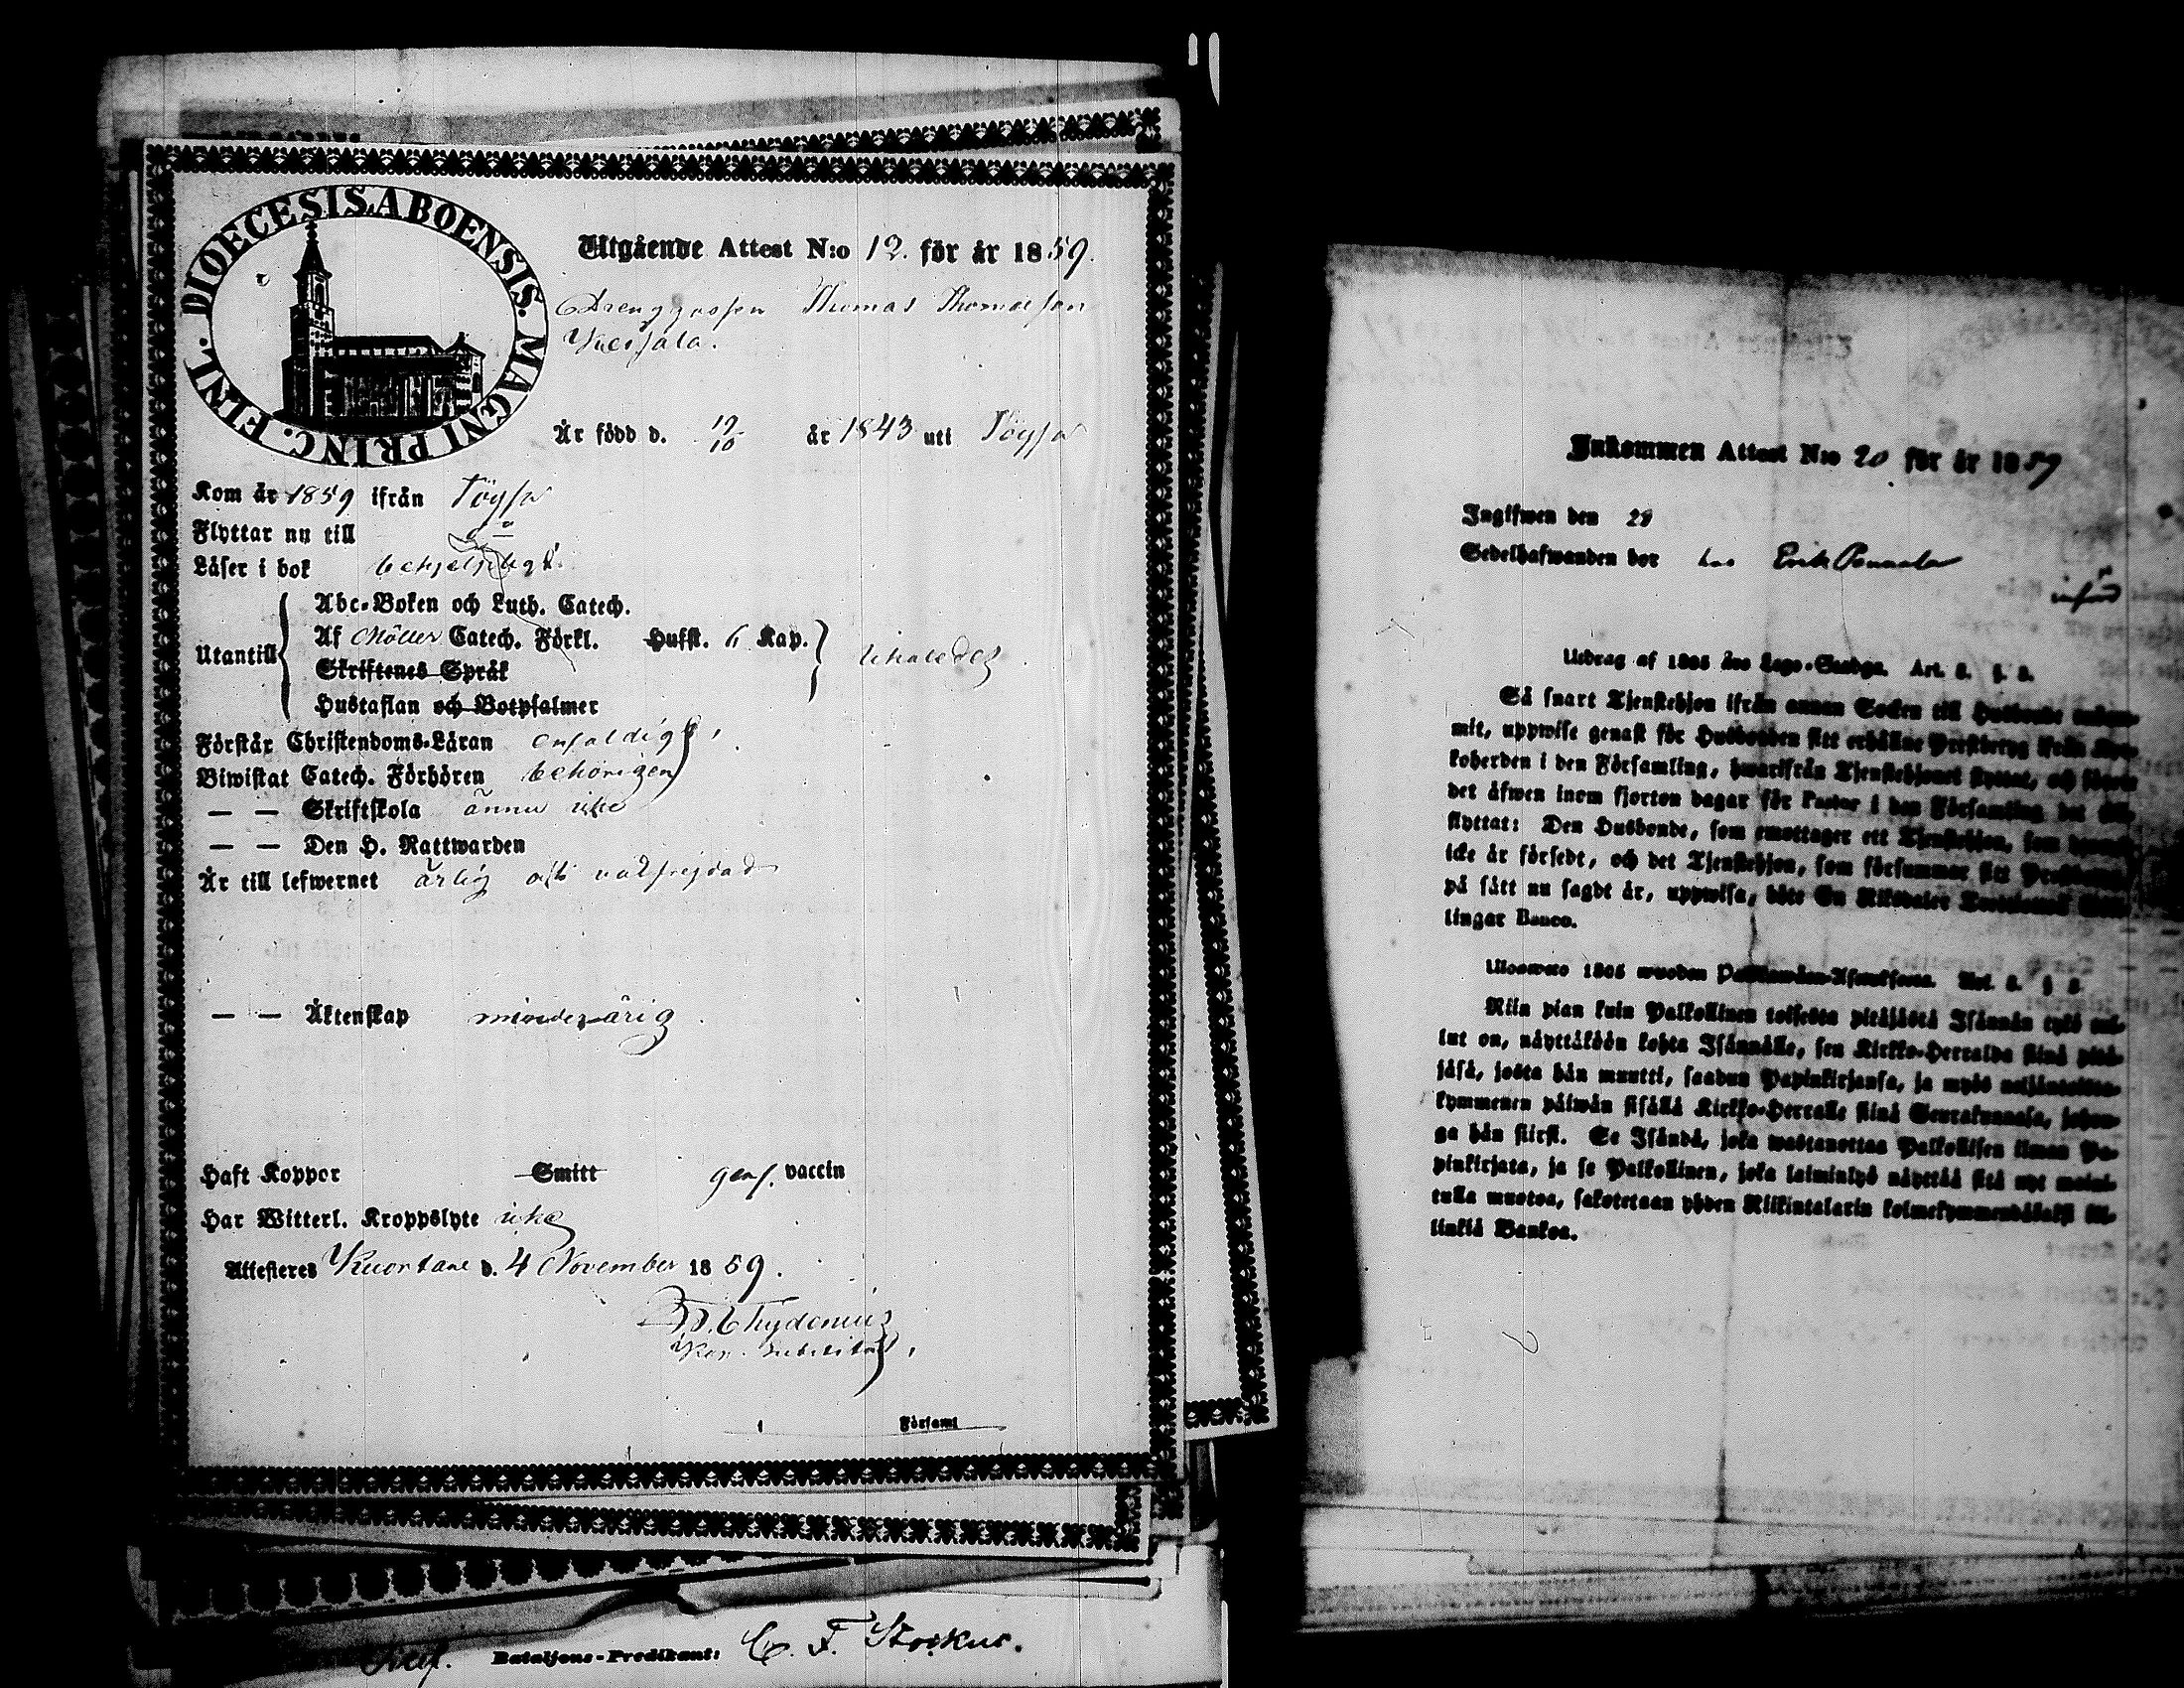 DIOECESIS ABOENSIS. MAGNI PRINC. FINL.
Utgående Attest N:o 12. för år 1859.
Drenggossen Thomas Thomasson
Är född d. 19/10 år 1843 uti Töysä
Kom år 1859 ifrån Töysä
Flyttar nu till d:o
Läser i bok behjelpligt.
Abc-Boken och Luth. Catech.
Utantill Af Möller Catech. Förkl. Hufst. 6 Kap. likaledes
Skriftenes Språk
Hustaflan och Botpsalmer
Förstår Christendoms-Läran enfaldigt,
Biwistat Catech. Förhören behörigen
— — Skriftskola ännu icke
— — Den H. Nattwarden
Är till lefwernet ärlig och välfrejdad
— — Äktenskap minderårig.
Haft Koppor Smitt gen. vaccin
Har Witterl. Kroppslyte icke
Attesteras Kuortane d. 4 November 1859.
Chydenius
Församl
Bataljons-Predikant: C. F. Stockus.
Inkommen Attest N:o 20 för år 1859
Ingifwen den 28
Sedelhafwanden bor hos Erik
införd
Utdrag af 1805 års Lego-Stadga. Art. 3. §. 8.
Så snart Tjenstehjon ifrån annan Socken till Husbonde
mit, uppwise genast för Husbonden sitt erhållne Prestbetyg ifrån
koherden i den Församling, hwarifrån Tjenstehjonet flyttat, och
det äfwen inom fjorton dagar för Pastor i den Församling det
flyttat: Den Husbonde, som emottager ett Tjenstehjon, som
icke är försedt, och det Tjenstehjon, som försummar sitt
på sätt nu sagdt är, uppwisa, böte En Riksdaler
lingar Banco.
Ulosweto 1805 wuoden
Niin pian kuin Palkollinen toisesta pitäjästä Isännän tykö
lut on, näyttäköön kohta Isännälle, sen Kirkko-Herralda siinä pitä-
jäsä, josta hän muutti, saadun Papinkirjansa, ja myös
kymmenen päiwän sisällä Kirkko-Herralle siinä Seurakunnasa, johon-
ga hän siirsi. Se Isändä, joka wastanottaa Palkollisen ilman Pa-
pinkirjata, ja se Palkollinen, joka laiminlyö näyttää sitä nyt maini-
tulla muotoa, sakotetaan yhden Riikintalarin
linkiä Bankoa.